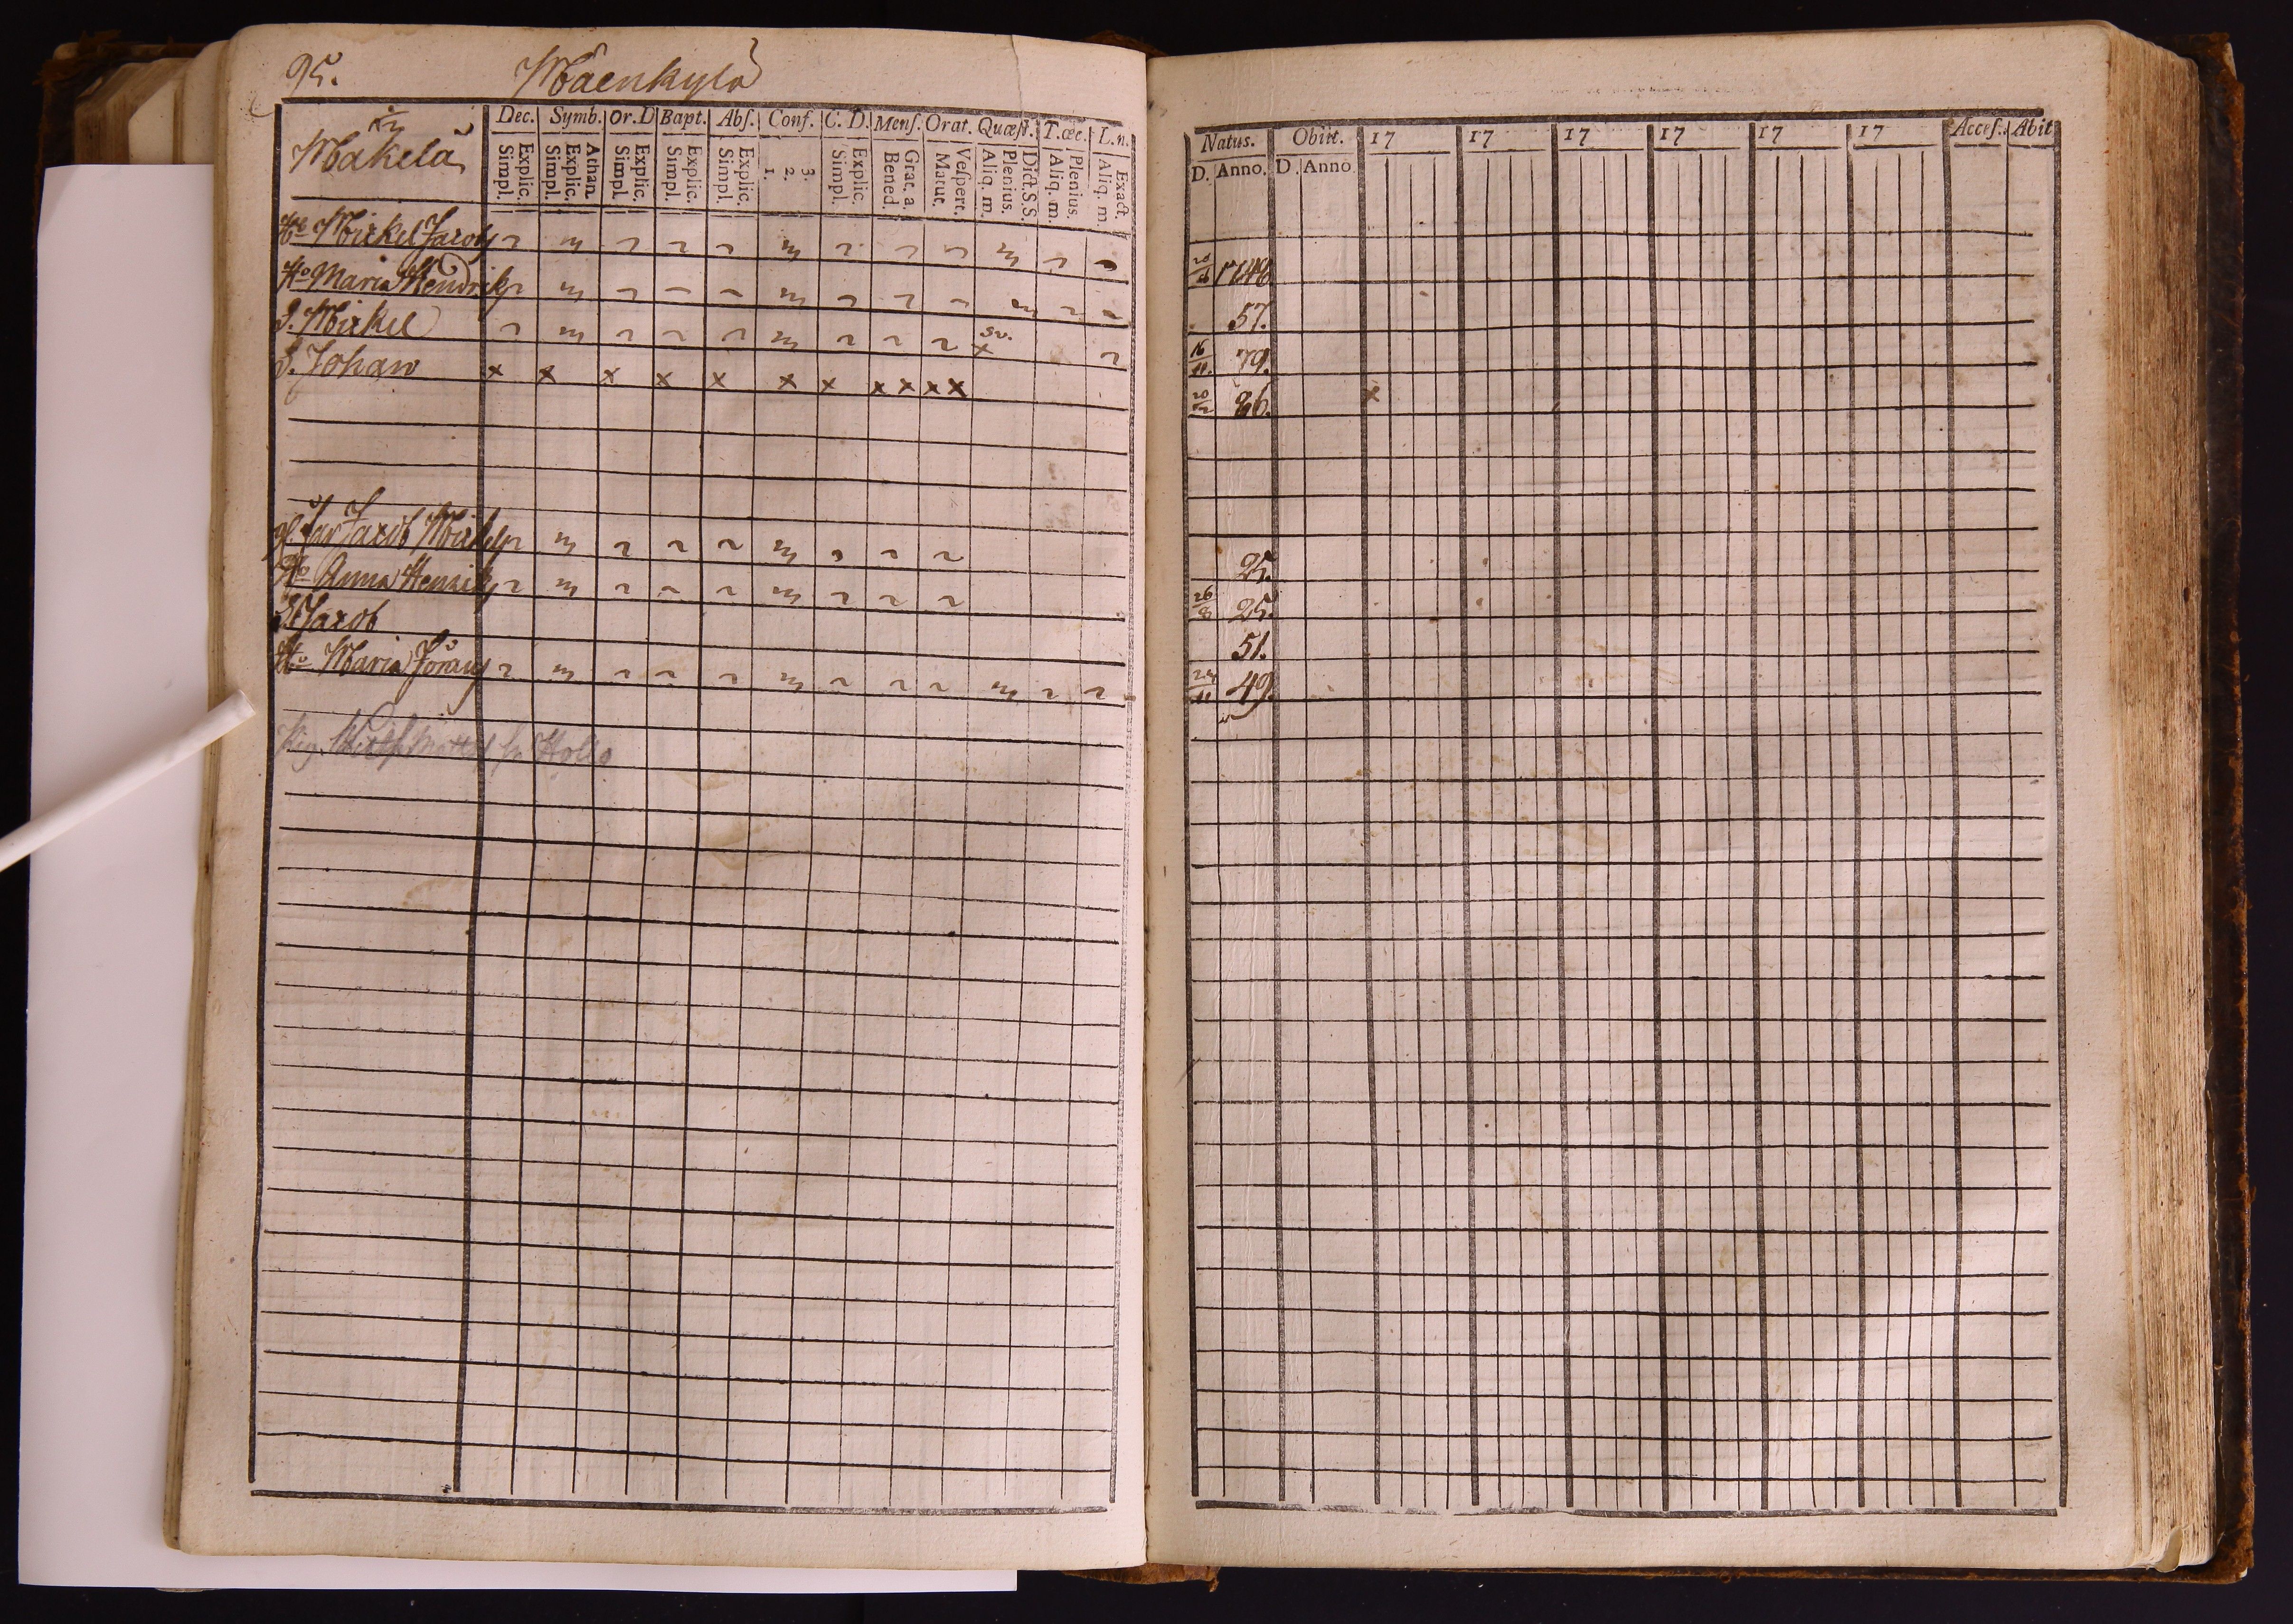 95. Mäenkylä
Mäkelä
Dec. Symb. Or. D Bapt. Abs. Conf. C. D. Mens. Orat. Quæst. T. œc. L. n.
Explic. Simpl. Athan. Explic. Simpl. Explic. Simpl. Explic. Simpl. Explic. Simpl. 3. 2. 1. Explic. Simpl. Grat. a. Bened. Vespert. Matut. Dict. S.S. Plenius. Aliq. m. Plenius. Aliq. m. Exact. Aliq. m.
Natus. Obiit. 17 17 17 17 17 17 Acces. Abit
D. Anno. D. Anno
Mickel Jacobs 1748
Ho Maria Hendriks 57.
S. Mickel sv. 16/11. 79.
S. Johan 86.
Jacob Mickels 25.
Ho Anna Henriks 26/8 25.
S. Jacob 51.
Ho Maria Jörans 49.
Matts